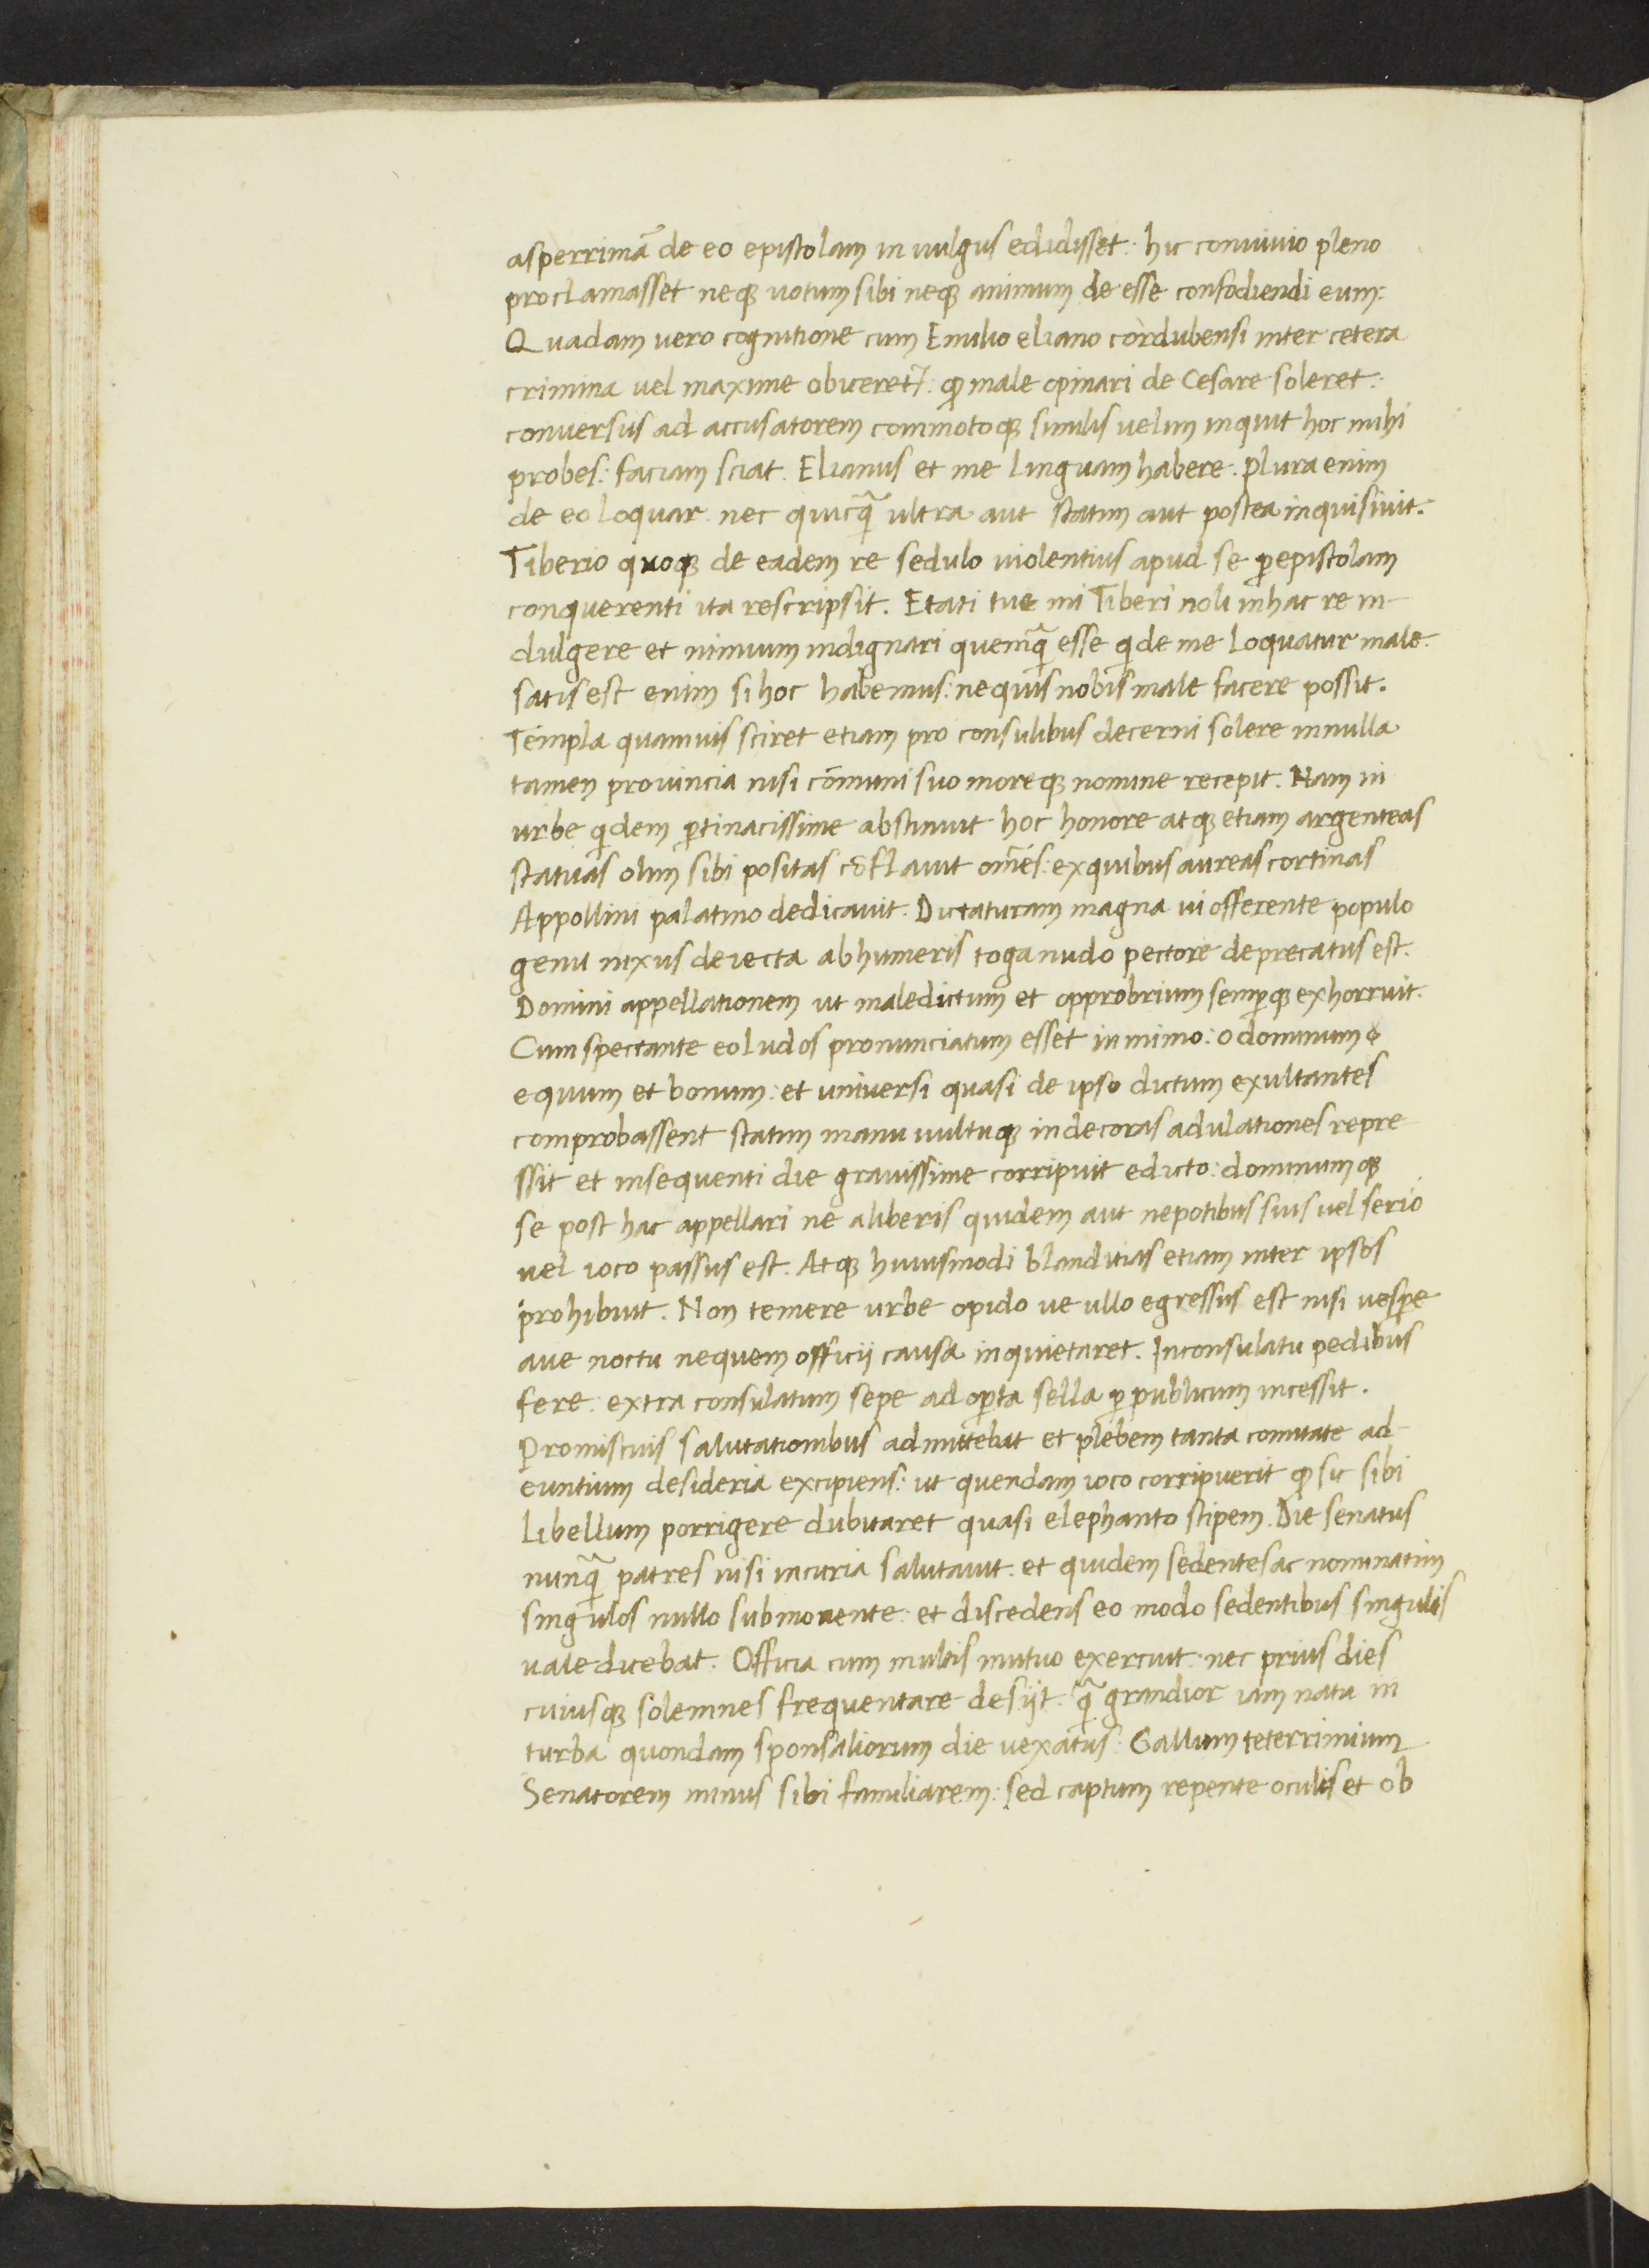 asperrimā de eo epistolam in uulgus edidisset: hic conuiuio pleno
proclamasset neqꝫ uotum sibi neqꝫ animum de esse confodiendi eum:
Quadam uero cognitione cum Emilio eliano cordubensi inter cetera
crimina uel maxime obiceretᷣ: ꝙ male opinari de Cesare soleret:
conuersus ad accusatorem commotoqꝫ similis uelim inquit hoc mihi
probes: faciam sciat Elianus et me linguam habere. plura enim
de eo loquar nec quicqᷓ ultra aut statim aut postea inquisiuit.
Tiberio quoqꝫ de eadem re sedulo uiolentius apud se ꝑ epistolam
conquerenti ita rescripsit. Etati tue mi Tiberi noli in hac re in-
dulgere et nimium indignari quemqᷓ esse qͥ de me loquatur male.
satis est enim si hoc habemus: ne quis nobis male facere possit.
Templa quamuis sciret etiam pro consulibus decerni solere in nulla
tamen prouincia nisi cōmuni suo moreqꝫ nomine recepit. Nam in
urbe qͥdem ꝑtinacissime abstinuit hoc honore atqꝫ etiam argenteas
statuas olim sibi positas cōflauit om̄es: ex quibus aureas cortinas
Appollini palatino dedicauit. Dictaturam magna ui offerente populo
genu nixus deiecta ab humeris toga nudo pectore deprecatus est.
Domini appellationem ut maledictum et opprobrium semꝑqꝫ exhorruit.
Cum spectante eo ludos pronunciatum esset in mimo: o dominum
equum et bonum: et uniuersi quasi de ipso dictum exultantes
comprobassent statim manu uultuqꝫ indecoras adulationes repre
ssit et insequenti die grauissime corripuit edicto: dominumqꝫ
se post hac appellari ne a liberis quidem aut nepotibus suis uel serio
uel ioco passus est. Atqꝫ huiusmodi blanditias etiam inter ipsos
prohibuit. Non temere urbe opido ue ullo egressus est nisi uesꝑe
aue noctu ne quem officij causa inquietaret. In consulatu pedibus
fere: extra consulatum sepe ad oꝑta sella ꝑ publicum incessit.
Promiscuis salutationibus admittebat et plebem tanta comitate ad-
euntium desideria excipiens: ut quendam ioco corripuerit ꝙ sic sibi
libellum porrigere dubitaret quasi elephanto stipem. Die senatus
nunqᷓ patres nisi in curia salutauit: et quidem sedentes ac nominatim
singulos nullo submonente: et discedens eo modo sedentibus singulis
uale dicebat. Officia cum multis mutuo exercuit: nec prius dies
cuiusqꝫ solemnes frequentare desijt. qᷓ grandior iam natu in
turba quondam sponsaliorum die uexatus: Gallum teterrimium
Senatorem minus sibi familiarem: sed captum repente oculis et ob